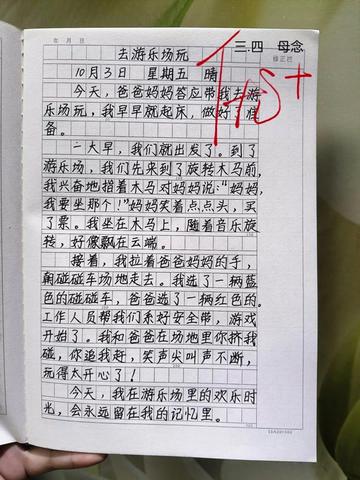 年 月 日
三.四 母念
修正栏
去游乐场玩
10月3日 星期五 晴
今天，爸爸妈妈答应带我去游
乐场玩，我早早就起床，做好了准
备。
一大早，我们就出发了。到了
游乐场，我们先来到了旋转木马前，
我兴奋地指着木马对妈妈说："妈妈，
我要坐那个！"妈妈笑着点点头，买
了票。我坐在木马上，随着音乐旋
转，好像飘在云端。
接着，我拉着爸爸妈妈的手，
朝碰碰车场地走去。我选了一辆蓝
色的碰碰车，爸爸选了一辆红色的。
工作人员帮我们系好安全带，游戏
开始了。我和爸爸在场地里你挤我
碰，你追我赶，笑声尖叫声不断，
玩得太开心了！
今天，我在游乐场里的欢乐时
光，会永远留在我的记忆里。